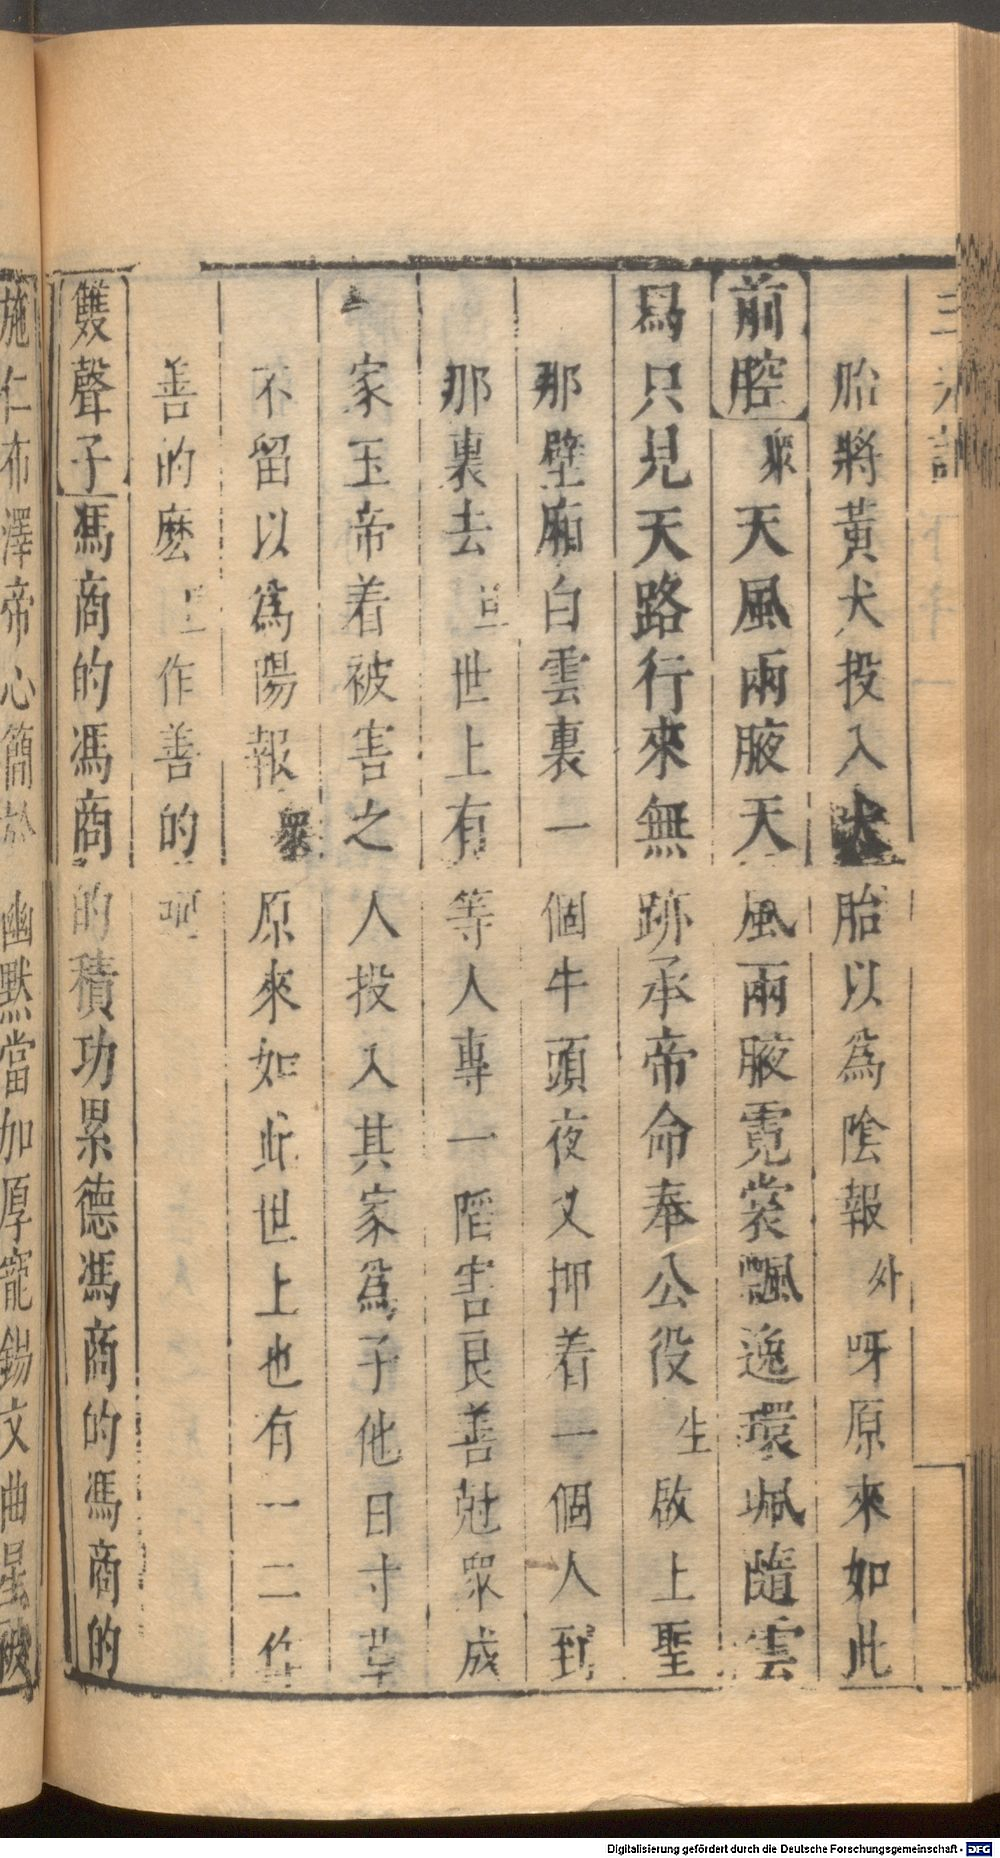 胎將黃犬投入犬胎以爲陰報外呀原來如此
前腔衆天風兩腋天風兩腋霓裳飄逸環珮隨雲
爲只見天路行來無跡承帝命奉公役生啟上聖
那壁廂白雲裏一個牛頭夜叉押着一個人到
那裏去 世上有等人專一陷害良善尅衆成
家玉帝着被害之人投入其家爲子他日寸草
不留以爲陽報衆原來如此世上也有一二作
善的麽 作善的
雙聲子馮商的馮商的積功累德馮商的馮商的
施仁布澤帝心簡 幽默當加厚寵錫文曲星
Digitalisierung gefördert durch die Deutsche Forschungsgemeinschaft - DFG